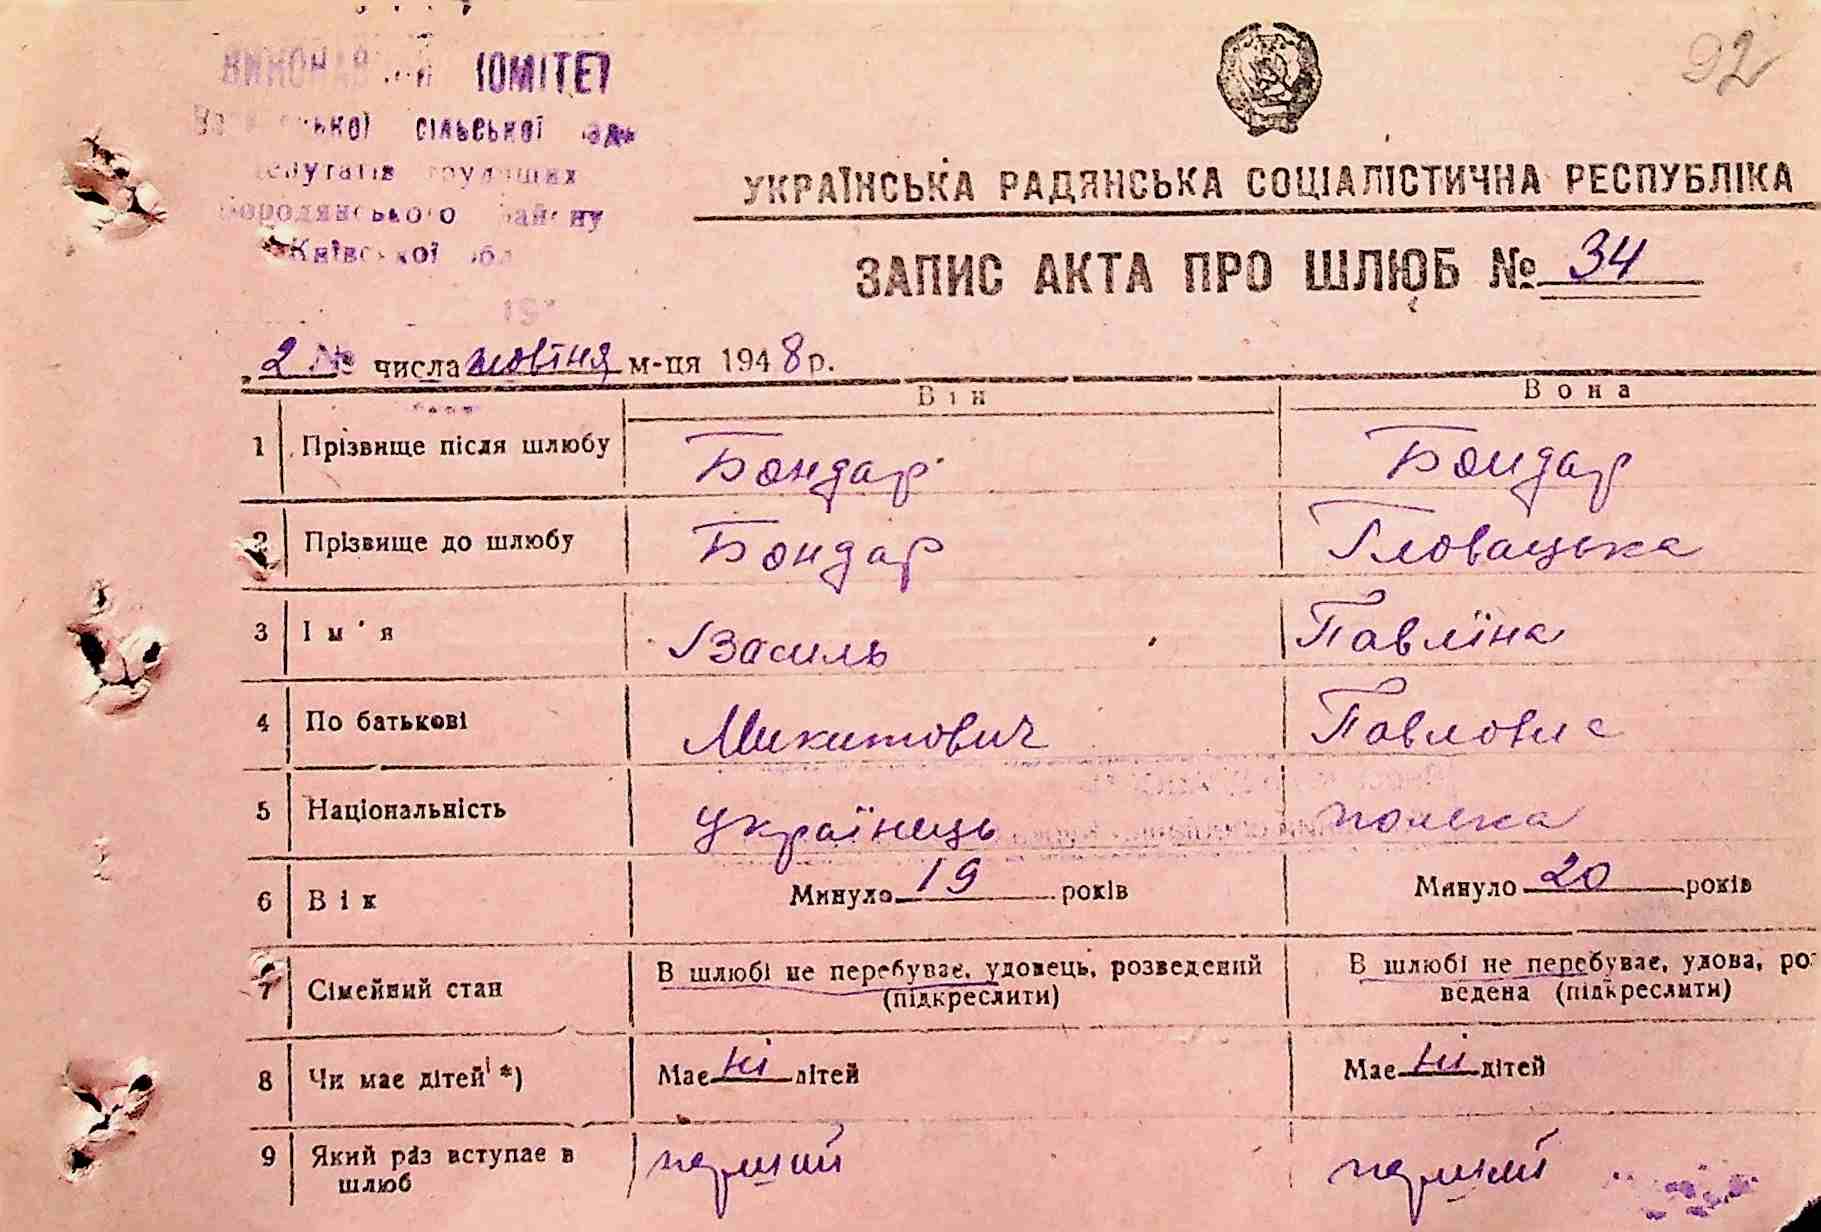 92
КОМІТЕТ
сільської
депутатів трудящих
Бородянського району
Київської обл
УКРАЇНСЬКА РАДЯНСЬКА СОЦІАЛІСТИЧНА РЕСПУБЛІКА
ЗАПИС АКТА ПРО ШЛЮБ № 34
2 числа жовтня м-ця 1948 р.
Він Вона
1 Прізвище після шлюбу Бондар Бондар
2 Прізвище до шлюбу Бондар Гловацька
3 Ім'я Василь Павліна
4 По батькові Микитович Павловна
5 Національність Українець полька
6 Вік Минуло 19 років Минуло 20 років
7 Сімейний стан В шлюбі не перебуває, удовець, розведений (підкреслити) В шлюбі не перебуває, удова, роз-
ведена (підкреслити)
8 Чи має дітей *) Має ні дітей Має ні дітей
9 Який раз вступає в шлюб перший перший